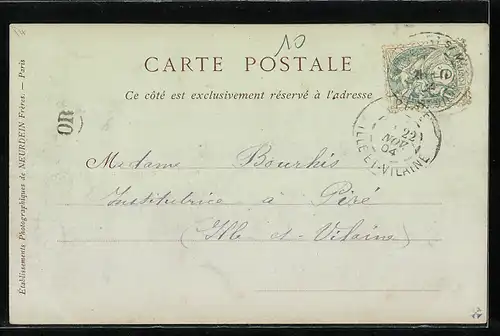 10
CARTE POSTALE
Ce côté est exclusivement réservé à l'adresse
OR
Madame Bourhis
Institutrice à Piré
(Ille et-Vilaine)
22
NOV
04
ILLE-ET-VILAINE
Établissements Photographiques de NEURDEIN Frères. — Paris